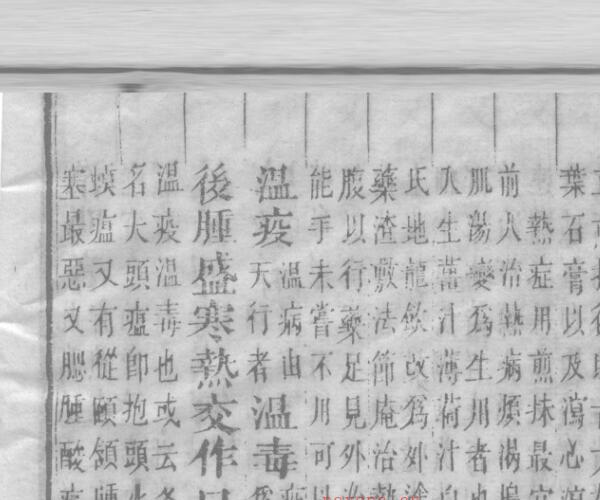 葉石膏以及瀉心
熱症用煎抹最
前人治熱病煩渴
肌湯變爲生用者
入生薑汁薄荷汁
氏地龍飲改爲外
藥渣敷法節庵治熱
腹以行藥足見外
能手未嘗不用可以
溫疫
溫病由
天行者
溫毒
後腫盛寒熱交作
溫疫溫毒也或云
名大頭瘟卽抱頭火
瘟又有從頤頷腫
塞最惡又腮腫酸